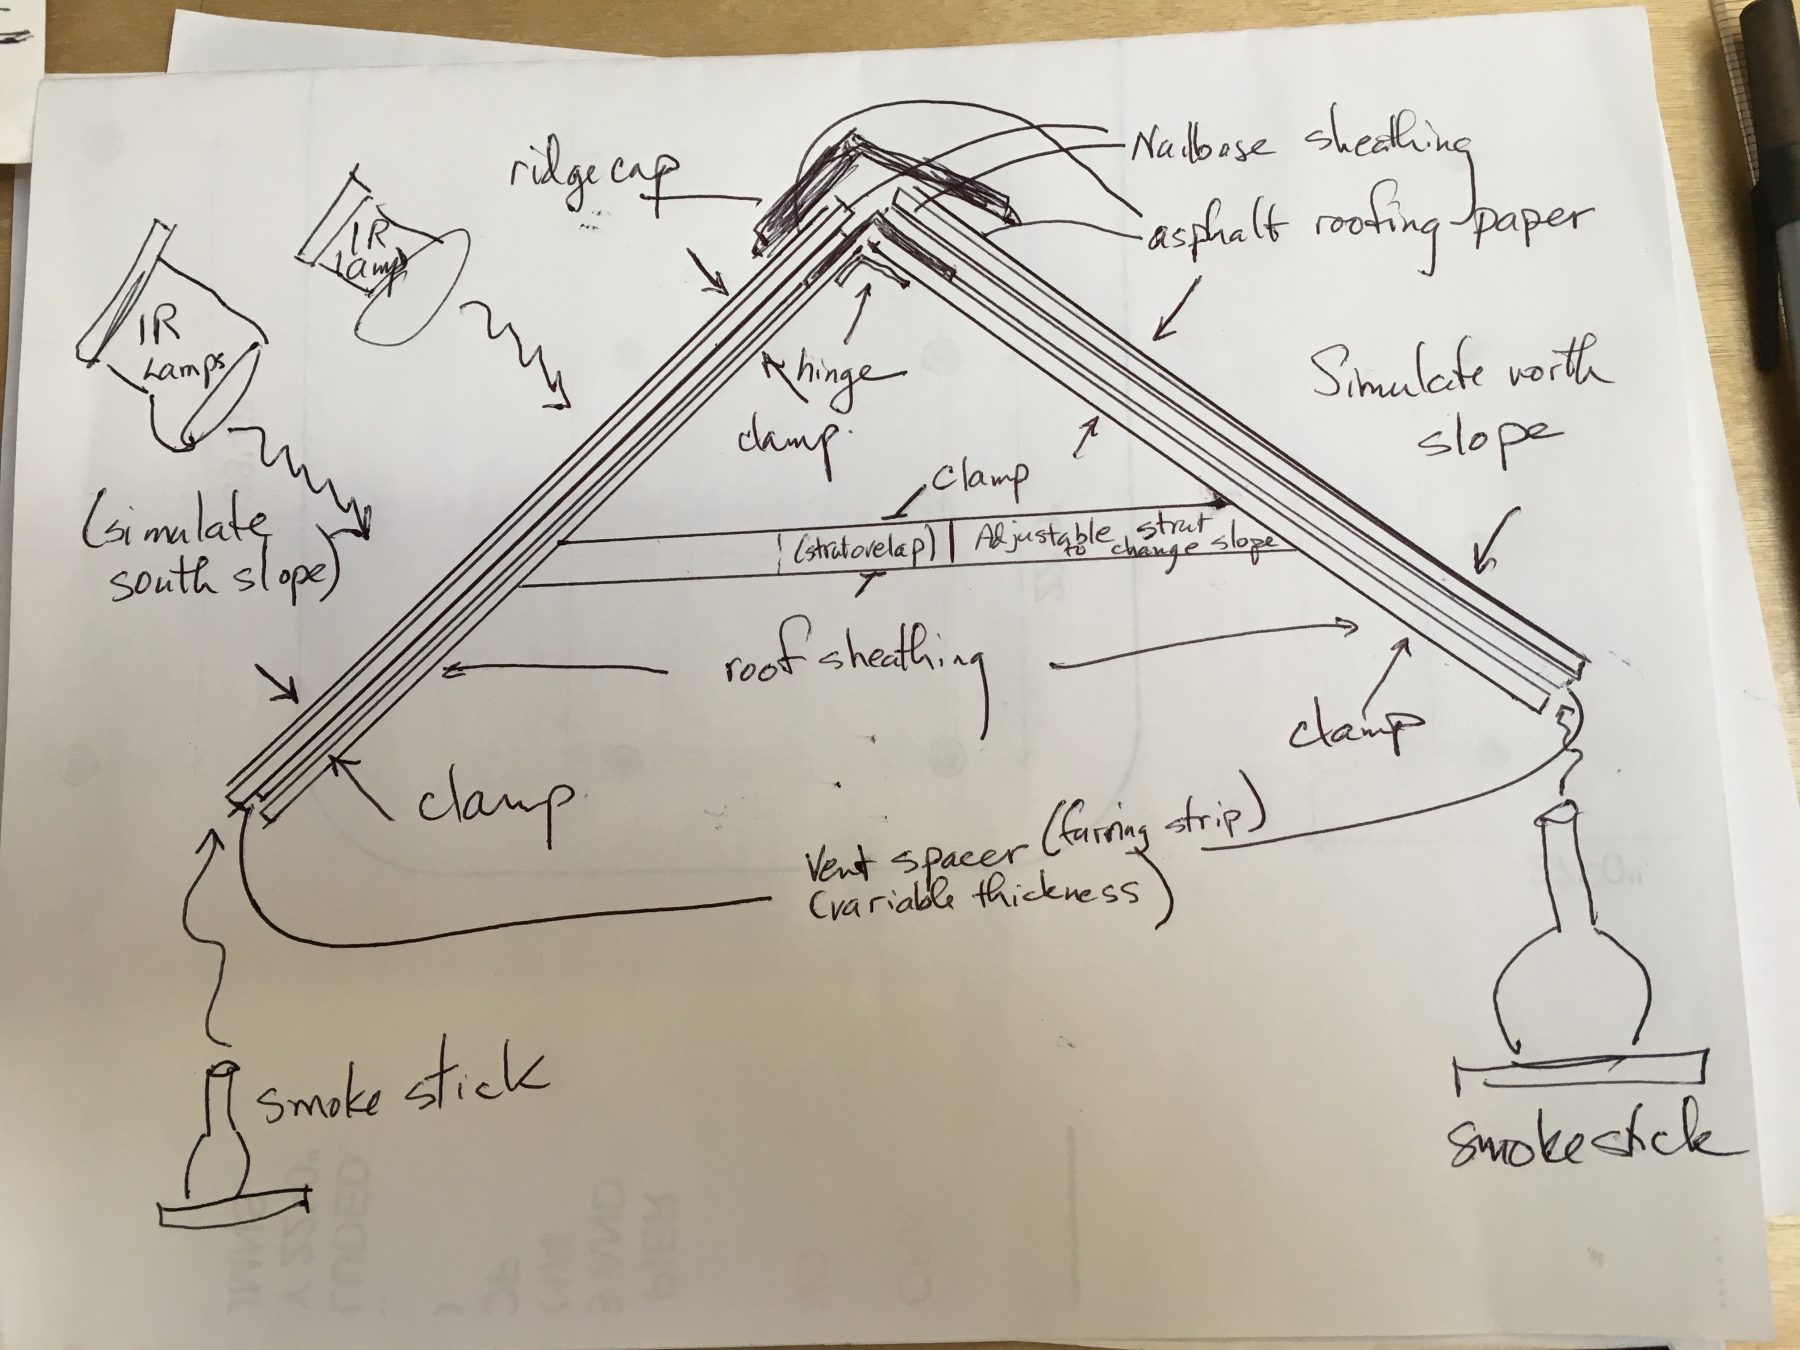 ridge cap
Nailbase sheathing
asphalt roofing paper
IR
lamps
IR
Lamps
hinge
clamp
Simulate north
slope
clamp
(simulate
south slope)
(strut ovelap)
Adjustable strut
to change slope
roof sheathing
clamp
clamp
Vent spacer (furring strip)
(variable thickness)
smoke stick
smoke stick